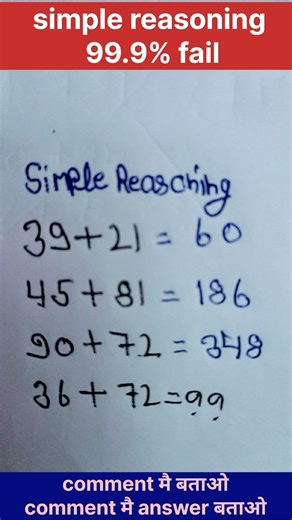 simple reasoning
99.9% fail
Simple Reasoning
39+21= 60
45+81=186
90+72=348
36+72=??
comment मै बताओ
comment मै answer बताओ